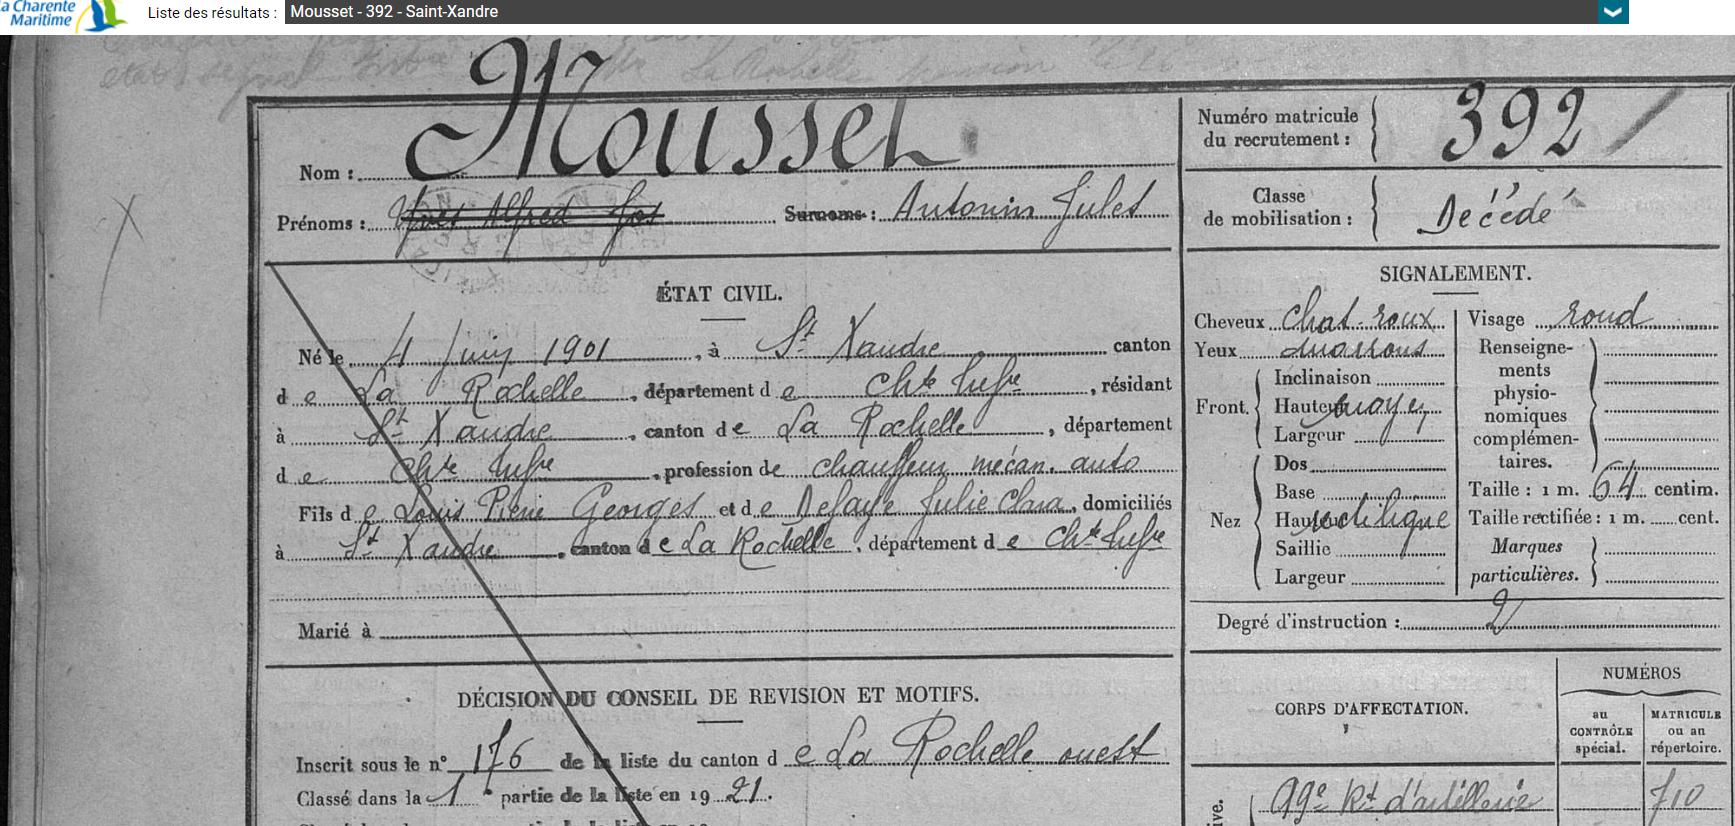 la Charente
Maritime
Liste des résultats : Mousset - 392 - Saint-Xandre
Nom : Mousset
Prénoms : Yves Alfred Jos Surnoms : Antonin Jules
Numéro matricule
du recrutement : 392
Classe
de mobilisation : Décédé
ÉTAT CIVIL.
Né le 4 Juin 1901, à St Xandre canton
de La Rochelle, département de Chte Infre, résidant
à St Xandre, canton de La Rochelle, département
de Chte Infre, profession de chauffeur mécan. auto
Fils de Louis Pierre Georges et de Defaye Julie Clara, domiciliés
à St Xandre, canton de La Rochelle, département de Chte Infre
Marié à
SIGNALEMENT.
Cheveux chat-roux
Yeux marrons
Front. Inclinaison
Hauteur moyen
Largeur
Nez Dos
Base
Hauteur rectiligne
Saillie
Largeur
Visage rond
Renseigne-
ments
physio-
nomiques
complémen-
taires.
Taille : 1 m. 64 centim.
Taille rectifiée : 1 m. cent.
Marques
particulières.
Degré d'instruction : 2
DÉCISION DU CONSEIL DE REVISION ET MOTIFS.
Inscrit sous le n° 176 de la liste du canton de La Rochelle ouest
Classé dans la 1e partie de la liste en 1921.
CORPS D'AFFECTATION.
NUMÉROS
au
CONTRÔLE
spécial.
MATRICULE
ou au
répertoire.
99e Rt d'artillerie 710